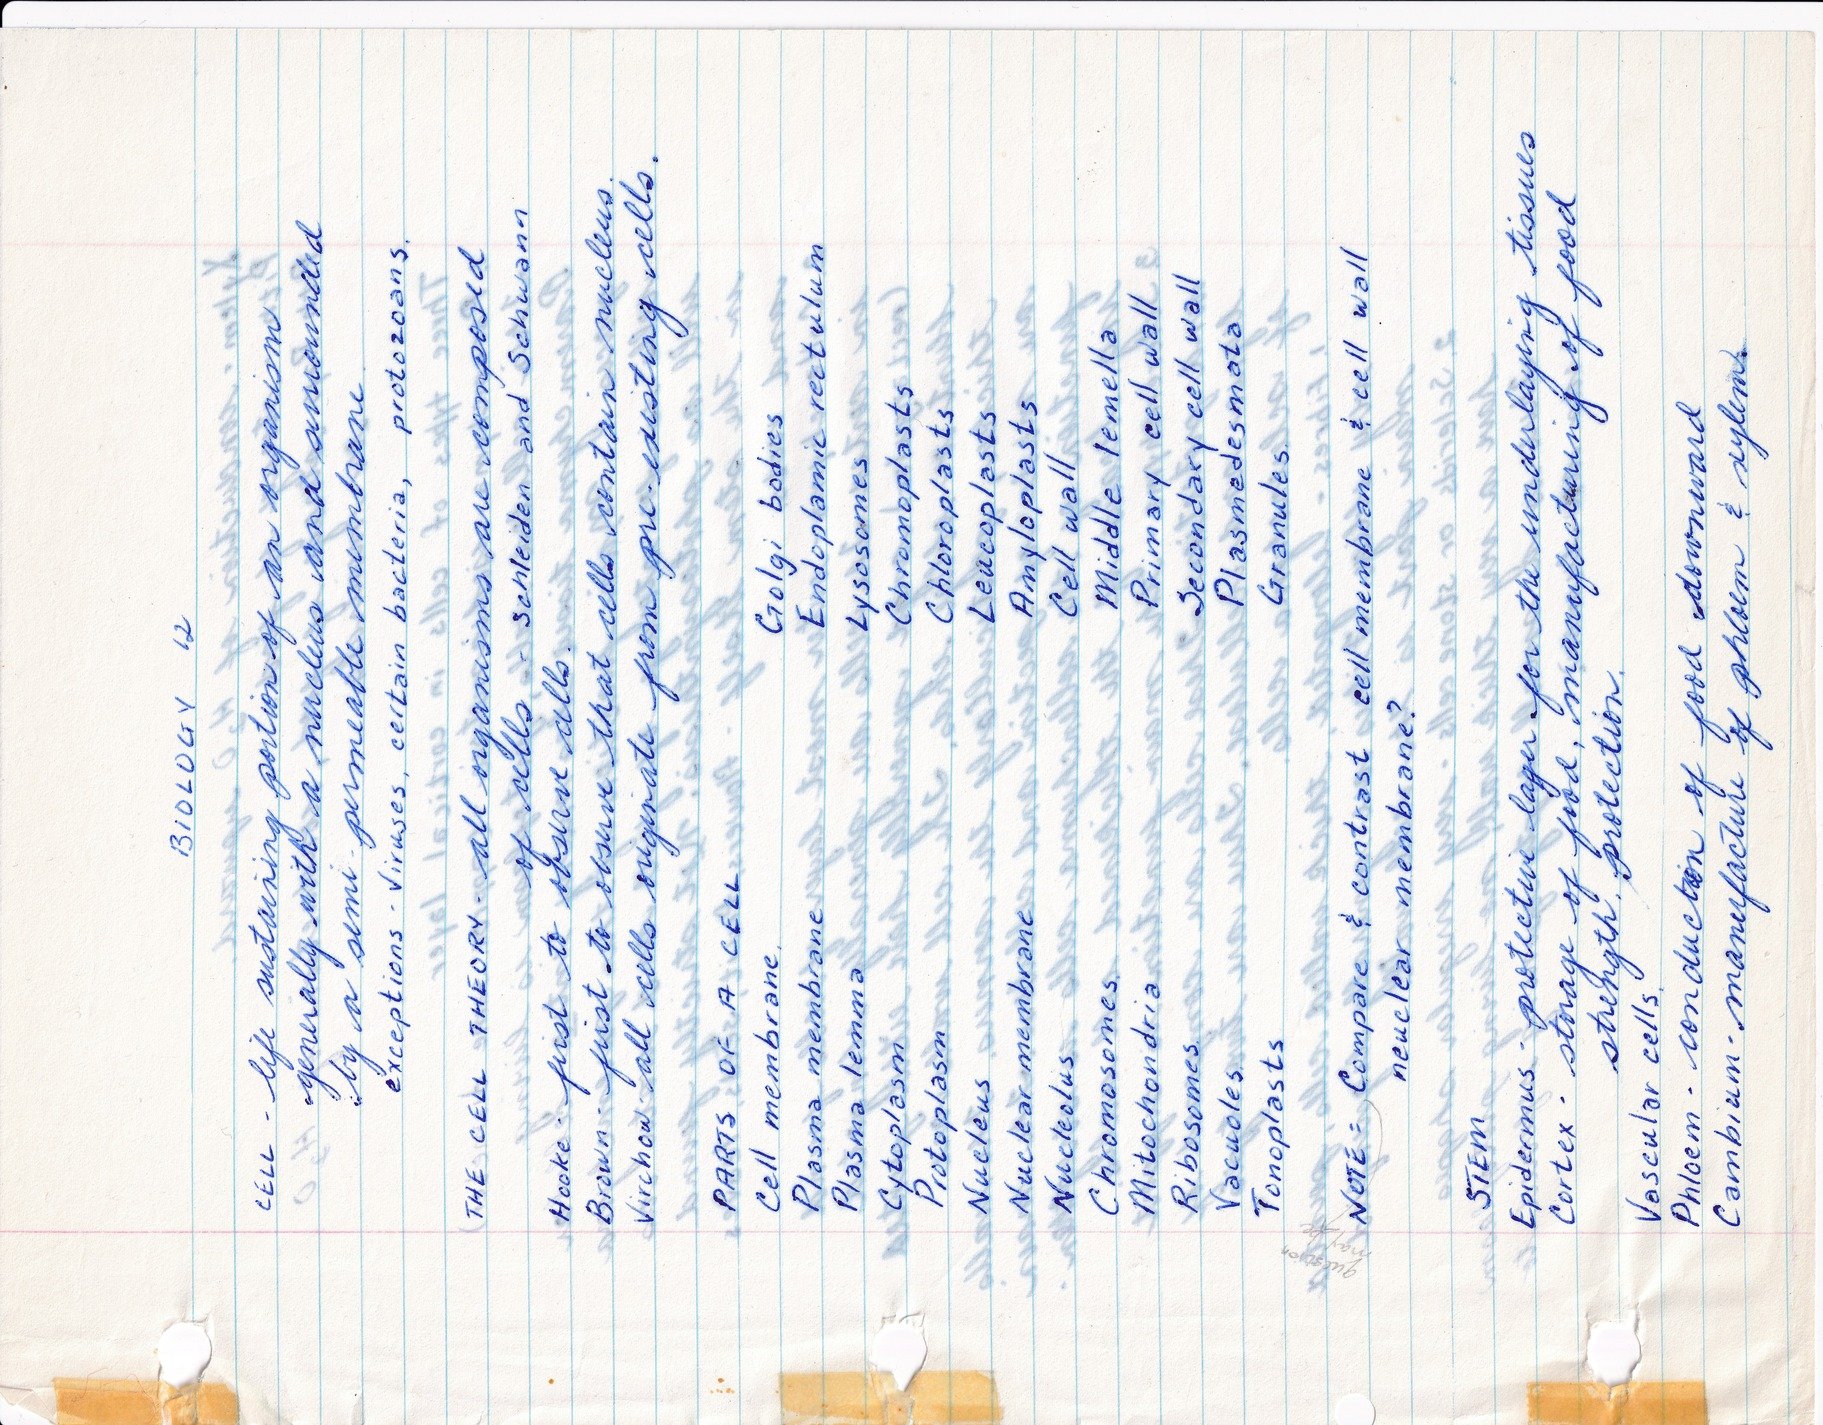 BIOLOGY 12
CELL - life sustaining portion of an organism
generally with a nucleus and surrounded
by a semi-permeable membrane
exceptions - viruses, certain bacteria, protozoans.
THE CELL THEORY - all organisms are composed
of cells - Schleiden and Schwann
Hooke - first to observe cells.
Brown - first to observe that cells contain nucleus.
Virchow - all cells originate from pre-existing cells.
PARTS OF A CELL
Cell membrane
Plasma membrane
Plasma lemma
Cytoplasm
Protoplasm
Nucleus
Nuclear membrane
Nucleolus
Chromosomes
Mitochondria
Ribosomes
Vacuoles
Tonoplasts
Golgi bodies
Endoplamic rectulum
Lysosomes
Chromoplasts
Chloroplasts
Leucoplasts
Amyloplasts
Cell wall
Middle lemella
Primary cell wall
Secondary cell wall
Plasmedesmata
Granules
question
maybe
NOTE = Compare & contrast cell membrane & cell wall
neuclear membrane?
STEM
Epidermus - protective layer for the underlaying tissues
Cortex - storage of food, manufacturing of food
strength, protection
Vascular cells
Phloem - conduction of food downward
Cambium - manufacture of phloem & xylem